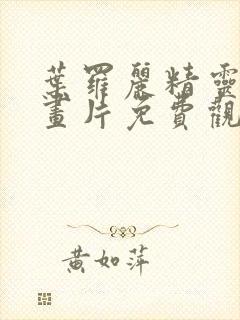 葉羅麗精靈
畫片免費觀
黃如萍